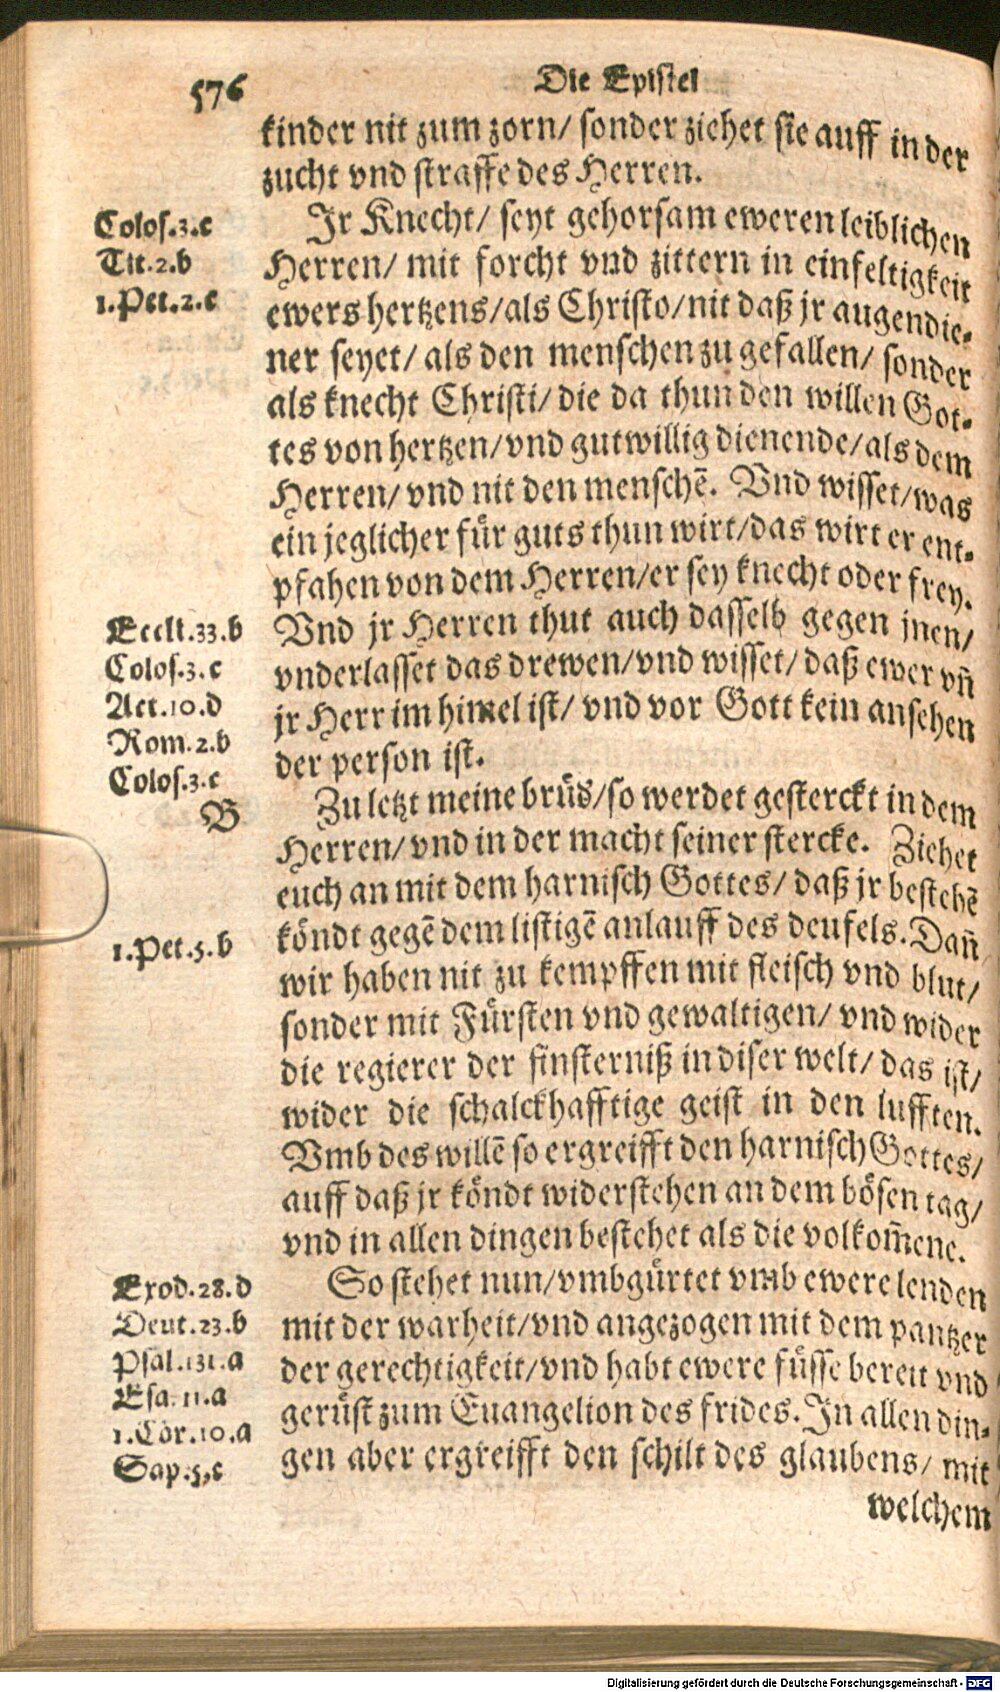 576
Die Epistel
kinder nit zum zorn/ sonder ziehet sie auff in der
zucht vnd straffe des Herren.
Colos.3.c
Tit.2.b
1.Pet.2.c
Jr Knecht/ seyt gehorsam eweren leiblichen
Herren/ mit forcht vnd zittern in einfeltigkeit
ewers hertzens/als Christo/nit daß jr augendie-
ner seyet/ als den menschen zu gefallen/ sonder
als knecht Christi/ die da thun den willen Got-
tes von hertzen/vnd gutwillig dienende/als dem
Herren/ vnd nit den menschē. Vnd wisset/was
ein jeglicher für guts thun wirt/das wirt er ent-
pfahen von dem Herren/er sey knecht oder frey.
Eccli.33.b
Colos.3.c
Act.10.d
Rom.2.b
Colos.3.c
Vnd jr Herren thut auch dasselb gegen jnen/
vnderlasset das drewen/vnd wisset/ daß ewer vñ
jr Herr im himel ist/ vnd vor Gott kein ansehen
der person ist.
B
Zu letzt meine brüd/so werdet gesterckt in dem
Herren/ vnd in der macht seiner stercke. Ziehet
euch an mit dem harnisch Gottes/ daß jr bestehē
1.Pet.5.b
köndt gegē dem listigē anlauff des deufels. Dañ
wir haben nit zu kempffen mit fleisch vnd blut/
sonder mit Fürsten vnd gewaltigen/ vnd wider
die regierer der finsterniß in diser welt/ das ist/
wider die schalckhafftige geist in den lufften.
Vmb des willē so ergreifft den harnisch Gottes/
auff daß jr köndt widerstehen an dem bösen tag/
vnd in allen dingen bestehet als die volkom̄ene.
Exod.28.d
Deut.23.b
Psal.131.a
Esa.11.a
1.Cor.10.a
Sap.5,c
So stehet nun/vmbgürtet vmb ewere lenden
mit der warheit/vnd angezogen mit dem pantzer
der gerechtigkeit/vnd habt ewere füsse bereit vnd
gerüst zum Euangelion des frides. In allen din-
gen aber ergreifft den schilt des glaubens/ mit
welchem
Digitalisierung gefördert durch die Deutsche Forschungsgemeinschaft - DFG